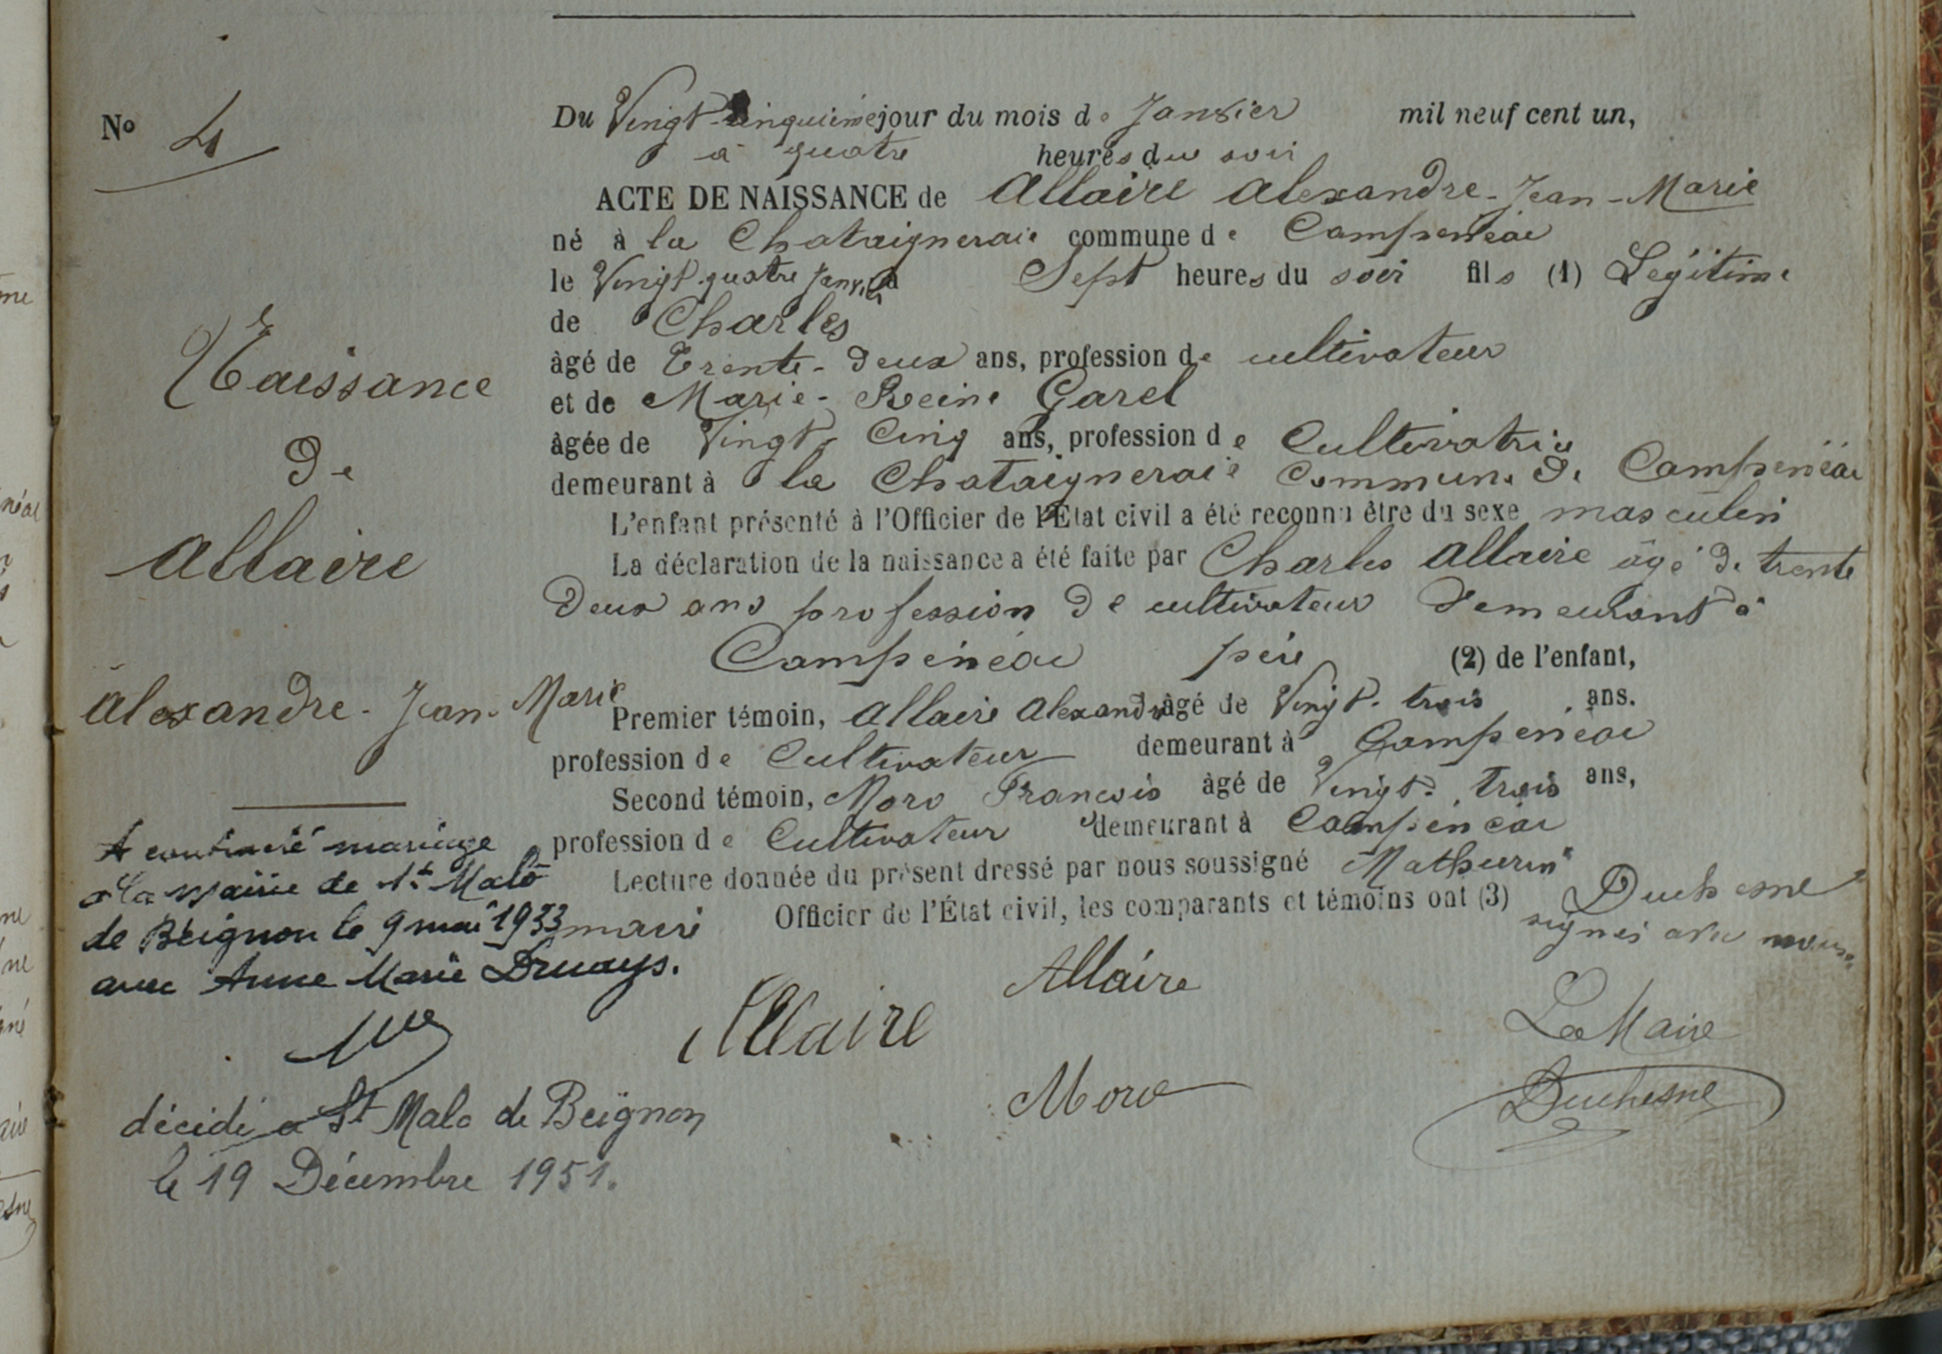 Nº 4
Du Vingt-Cinquième jour du mois de Janvier mil neuf cent un,
à quatre heures du soir
ACTE DE NAISSANCE de Allaire Alexandre-Jean-Marie
né à la Chataigneraie commune de Campénéac
le Vingt quatre Janvier à Sept heures du soir fils (1) Legitime
de Charles
âgé de Trente-deux ans, profession de cultivateur
et de Marie-Reine Garel
âgée de Vingt-Cinq ans, profession de Cultivatrice
demeurant à la Chataigneraie Commune de Campénéac
L'enfant présenté à l'Officier de l'État civil a été reconnu être du sexe masculin
La déclaration de la naissance a été faite par Charles Allaire âgé de trente
Deux ans profession de cultivateur demeurant à
Campénéac père (2) de l'enfant,
Premier témoin, Allaire Alexandre âgé de Vingt-trois ans.
profession de Cultivateur demeurant à Campénéac
Second témoin, Moro François âgé de Vingt-trois ans,
profession de Cultivateur demeurant à Campénéac
Lecture donnée du présent dressé par nous soussigné Mathurin Duchesne
maire Officier de l'État civil, les comparants et témoins ont (3) signés avec nous.
Allaire
Allaire
Le Maire
Moro
Duchesne
Naissance
de
Allaire
Alexandre-Jean-Marie
A contracté mariage
à la Mairie de St Malo
de Beignon le 9 mai 1933
avec Anne Marie Druays.
décédé à St Malo de Beignon
le 19 Décembre 1951.